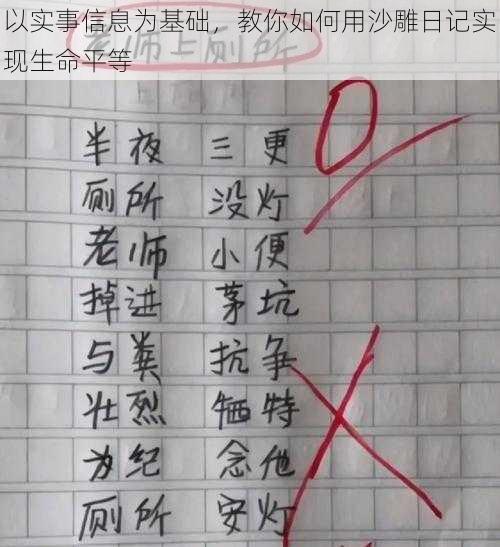 以实事信息为基础，教你如何用沙雕日记实
现生命平等
老师上厕所
半夜 三更
厕所 没灯
老师 小便
掉进 茅坑
与粪 抗争
壮烈 牺特
为纪 念他
厕所 安灯
0